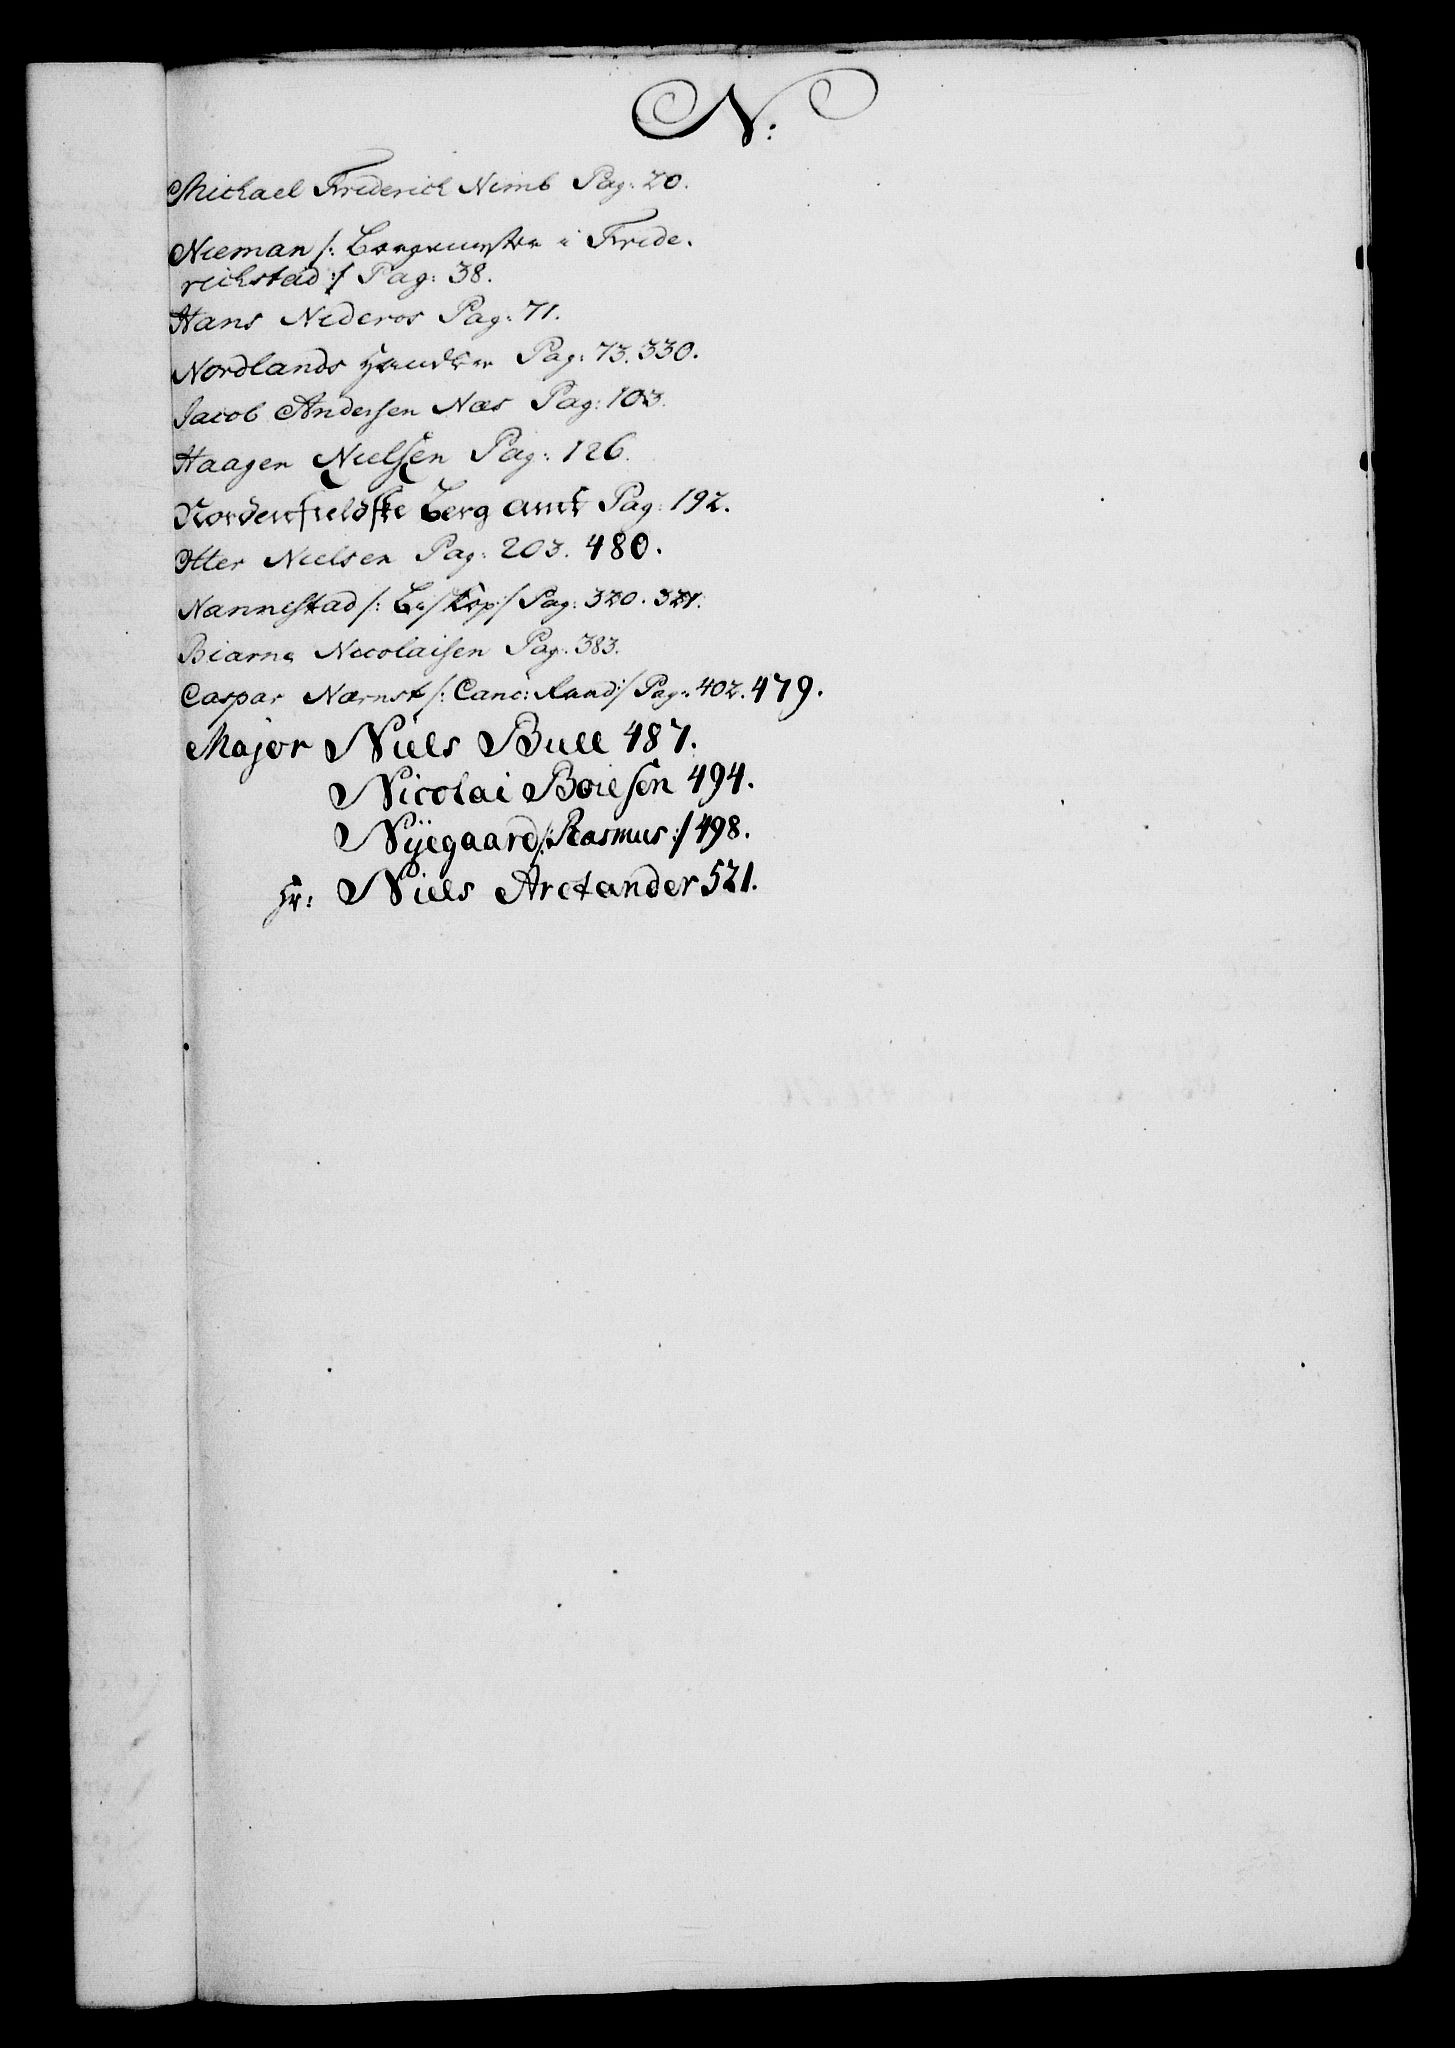 N:
Michael Friderich Nimb Pag: 20.
Nieman /: Borgemester i Fride.
richstad :/ Pag: 38.
Hans Nideros Pag: 71.
Nordlands Handler Pag: 73. 330.
Jacob Andersen Næs Pag: 103.
Haagen Nielsen Pag: 126.
Nordenfieldske Berg amt Pag: 192.
Itter Nielsen Pag: 203. 480.
Nannestad /: Biskop :/ Pag: 320. 321.
Biarne Nicolaisen Pag: 383.
Caspar Nærnst /: Canc: Raad :/ Pag: 402. 479.
Major Niels Bull 487.
Nicolai Boiesen 494.
Nÿegaard /: Rasmus :/ 498.
Hr: Niels Arctander 521.